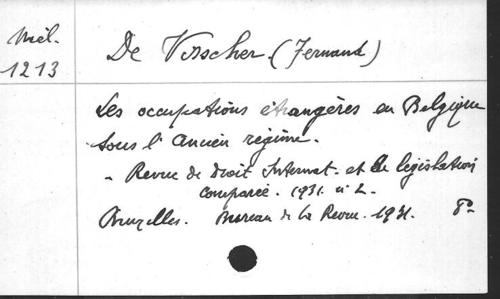 Mél.
1213
De Visscher (Fernand)
Les occupations étrangères en Belgique
sous l'Ancien régime.
- Revue de droit internat. et de législation
comparée. 1931. n° 2.
Bruxelles. Bureau de la Revue. 1931. 8°